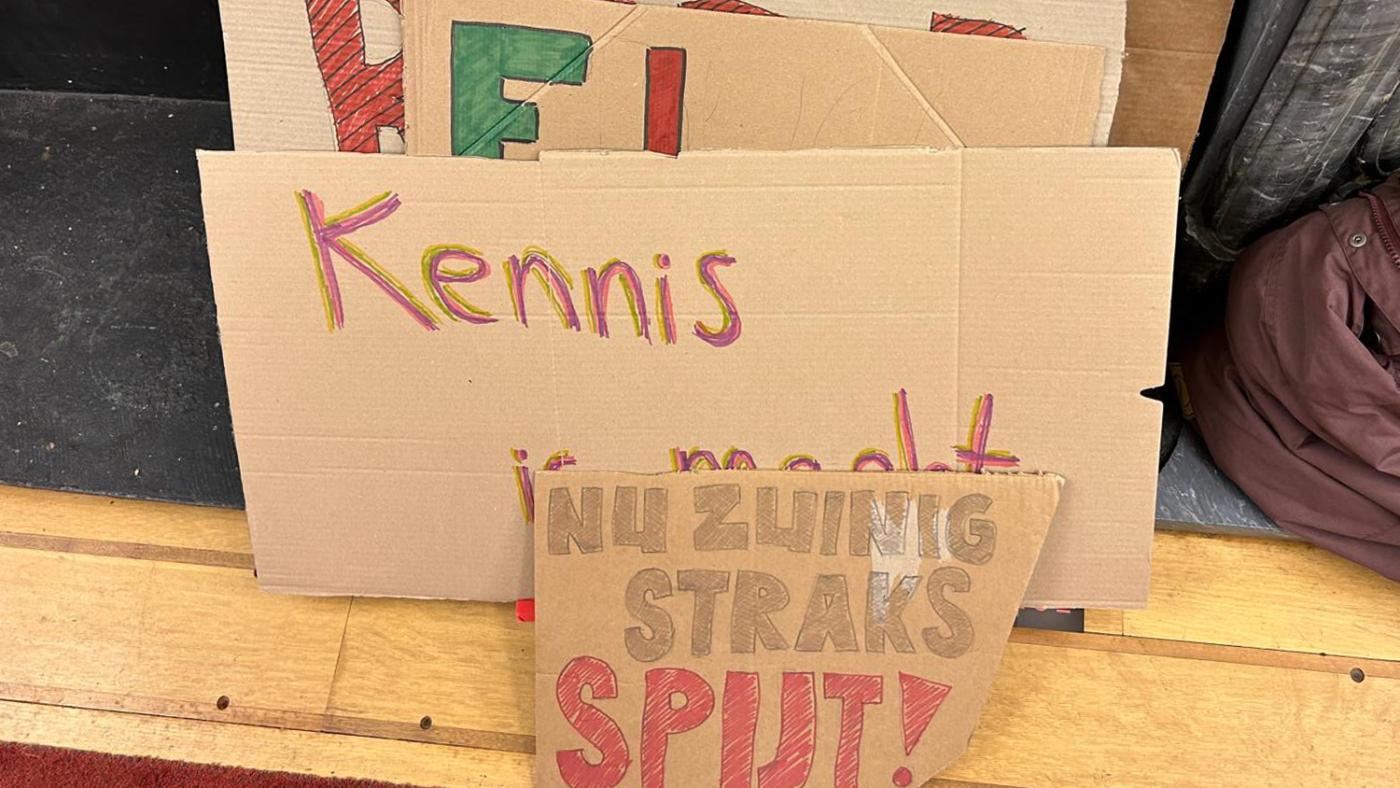 Kennis
is macht
NU ZUINIG
STRAKS
SPIJT!